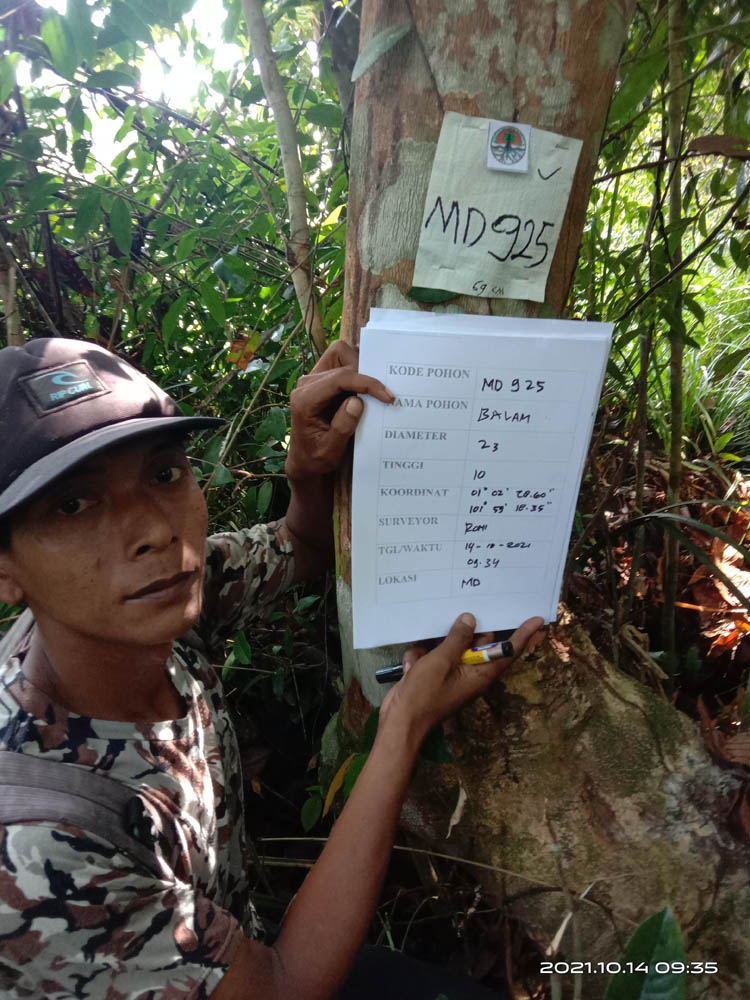 MD 925
69 CM
RIP CURL
KODE POHON MD 925
NAMA POHON BALAM
DIAMETER 23
TINGGI 10
KOORDINAT 01° 02' 28.60"
101° 59' 18.35"
SURVEYOR ROMI
TGL/WAKTU 14-10-2021
09.34
LOKASI MD
2021.10.14 09:35